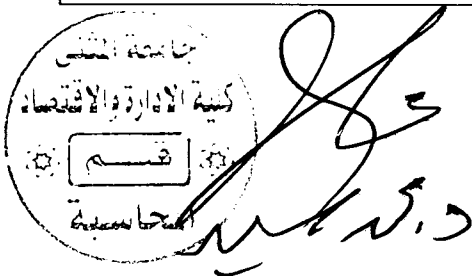 جامعة المثنى
كلية الادارة والاقتصاد
قسم
المحاسبة
د.